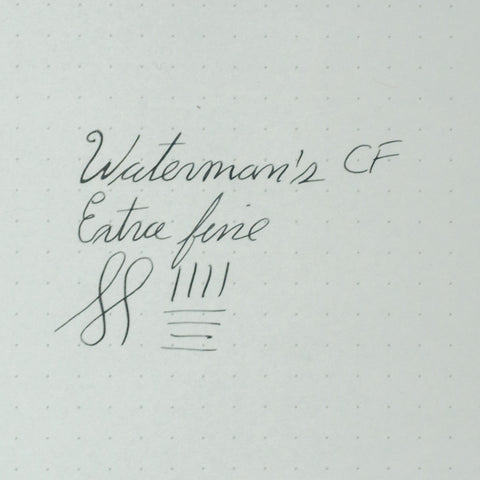 Waterman's CF
Extra fine